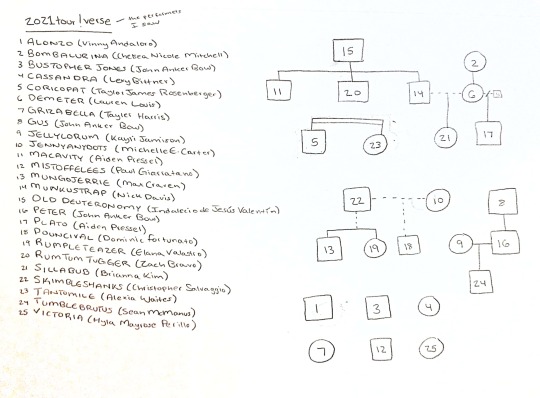 2021tour!verse – the performers
I saw
1 ALONZO (Vinny Andaloro)
2 BOMBALURINA (Chelsea Nicole Mitchell)
3 BUSTOPHER JONES (John Anker Bow)
4 CASSANDRA (Lexy Bittner)
5 CORICOPAT (Taylor James Rosenberger)
6 DEMETER (Lauren Louis)
7 GRIZABELLA (Tayler Harris)
8 GUS (John Anker Bow)
9 JELLYLORUM (Kayli Jamison)
10 JENNYANYDOTS (Michelle E. Carter)
11 MACAVITY (Aiden Pressel)
12 MISTOFFELEES (Paul Giarratano)
13 MUNGOJERRIE (Max Craven)
14 MUNKUSTRAP (Nick Davis)
15 OLD DEUTERONOMY (Indalecio de Jesús Valentín)
16 PETER (John Anker Bow)
17 PLATO (Aiden Pressel)
18 POUNCIVAL (Dominic Fortunato)
19 RUMPLETEAZER (Elana Valastro)
20 RUM TUM TUGGER (Zach Bravo)
21 SILLABUB (Brianna Kim)
22 SKIMBLESHANKS (Christopher Salvaggio)
23 TANTOMILE (Alexia Waites)
24 TUMBLEBRUTUS (Sean McManus)
25 VICTORIA (Hyla Mayrose Perillo)
15
2
11 20 14 6
5 23 21 17
22 10 8
13 19 18 9 16
24
1 3 4
7 12 25